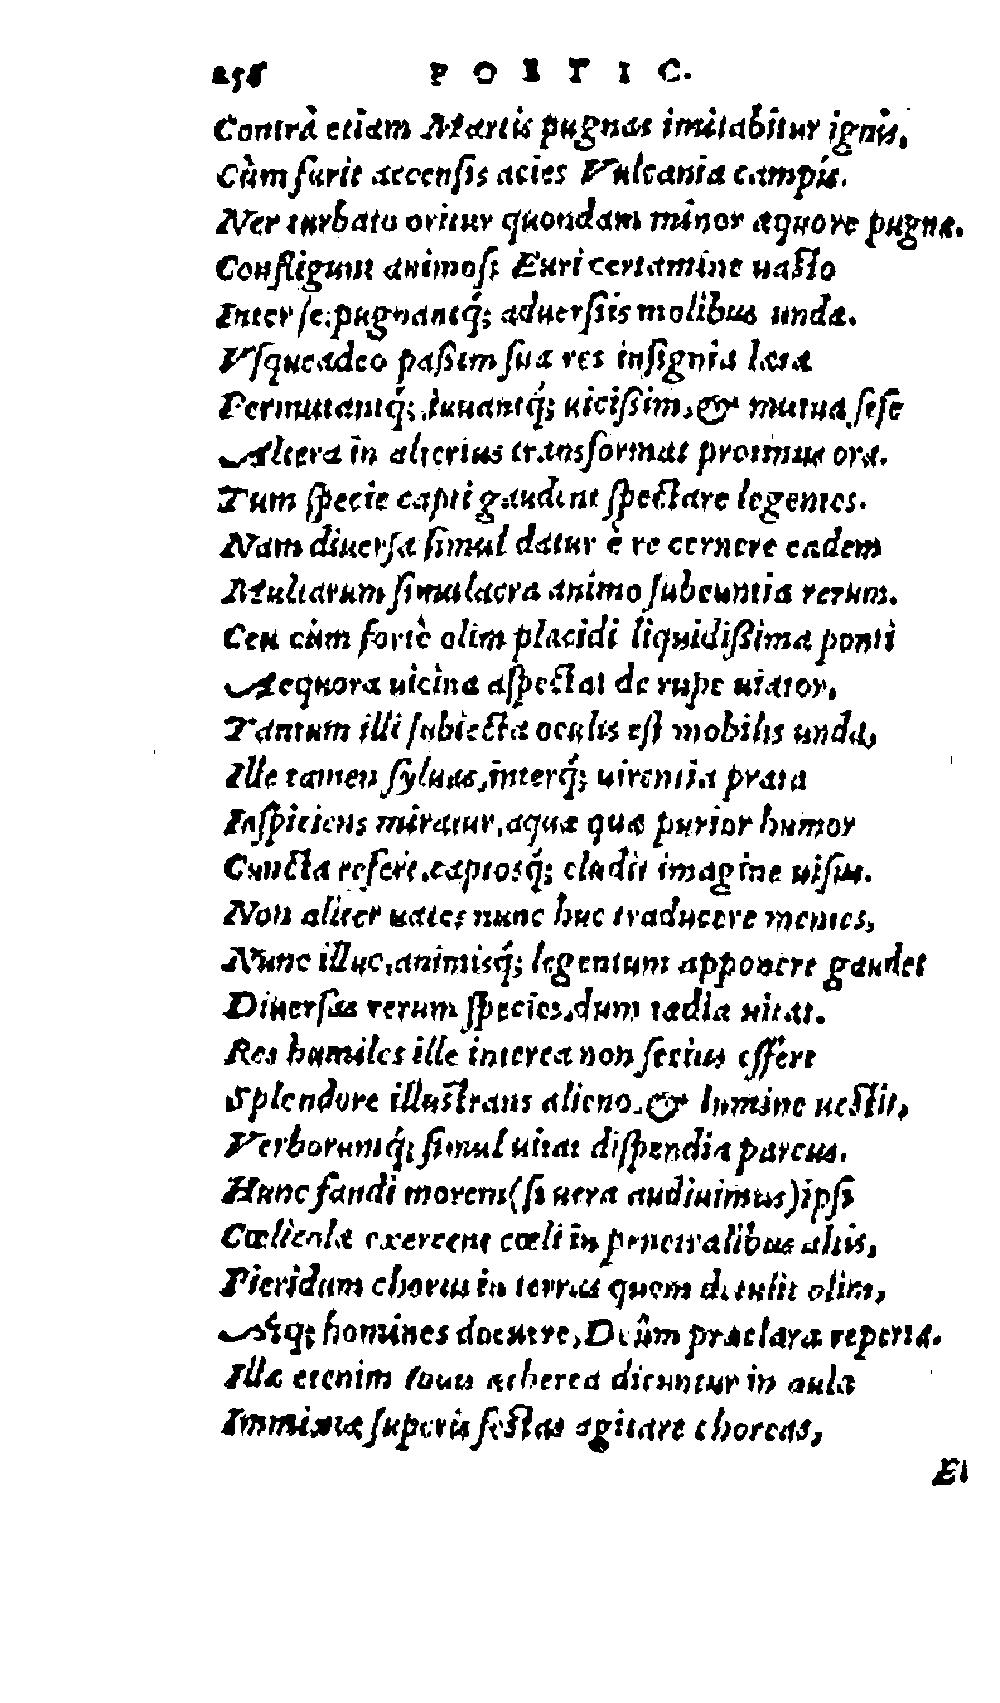 258 POETIC.
Contrà etiam Martis pugnas imitabitur ignis,
Cùm furit accensis acies Vulcania campis.
Nec turbato oritur quondam minor æquore pugna.
Confligunt animosi Euri certamine uasto
Inter se, pugnantq́; aduersis molibus undæ.
Vsqueadeo paßim sua res insignia læta
Permutantq́;, iuuantq́; uicißim, & mutua sese
Altera in alterius transformat protinus ora.
Tum specie capti gaudent spectare legentes.
Nam diuersa simul datur è re cernere eadem
Multarum simulacra animo subeuntia rerum.
Ceu cùm fortè olim placidi liquidißima ponti
Aequora uicina aspectat de rupe uiator,
Tantum illi subiecta oculis est mobilis unda,
Ille tamen syluas, interq́; uirentia prata
Inspiciens miratur, aquæ quæ purior humor
Cuncta refert, captosq́; eludit imagine uisus.
Non aliter uates nunc huc traducere mentes,
Nunc illuc, animisq́; legentum apponere gaudet
Diuersas rerum species, dum tædia uitat.
Res humiles ille interea non secius effert
Splendore illustrans alieno, & lumine uestit,
Verborumq́; simul uitat dispendia parcus.
Hunc fandi morem (si uera audiuimus) ipsi
Cœlicolæ exercent cœli in penetralibus altis,
Pieridum chorus in terras quem detulit olim,
Atq; homines docuere, Deûm præclara reperta.
Illæ etenim Iouis ætherea dicuntur in aula
Immixtæ superis festas agitare choreas,
Et